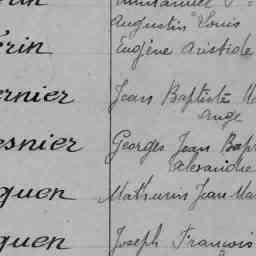 Augustin Louis
Eugène Aristide
Jean Baptiste
Ange
Georges Jean Bap
Alexandre
guen Mathurin Jean Ma
guen Joseph François